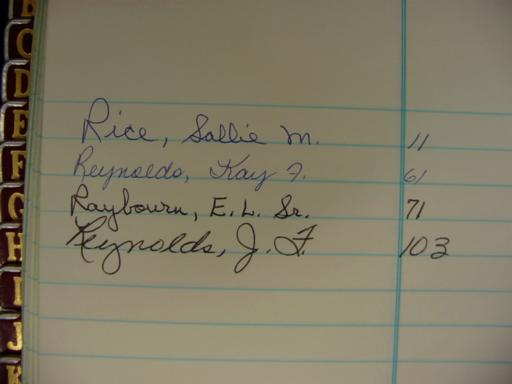 B
C
D
E
F
G
H
I
J
K
Rice, Sallie M. 11
Reynolds, Kay F. 61
Raybourn, E. L. Sr. 71
Reynolds, J. F. 103